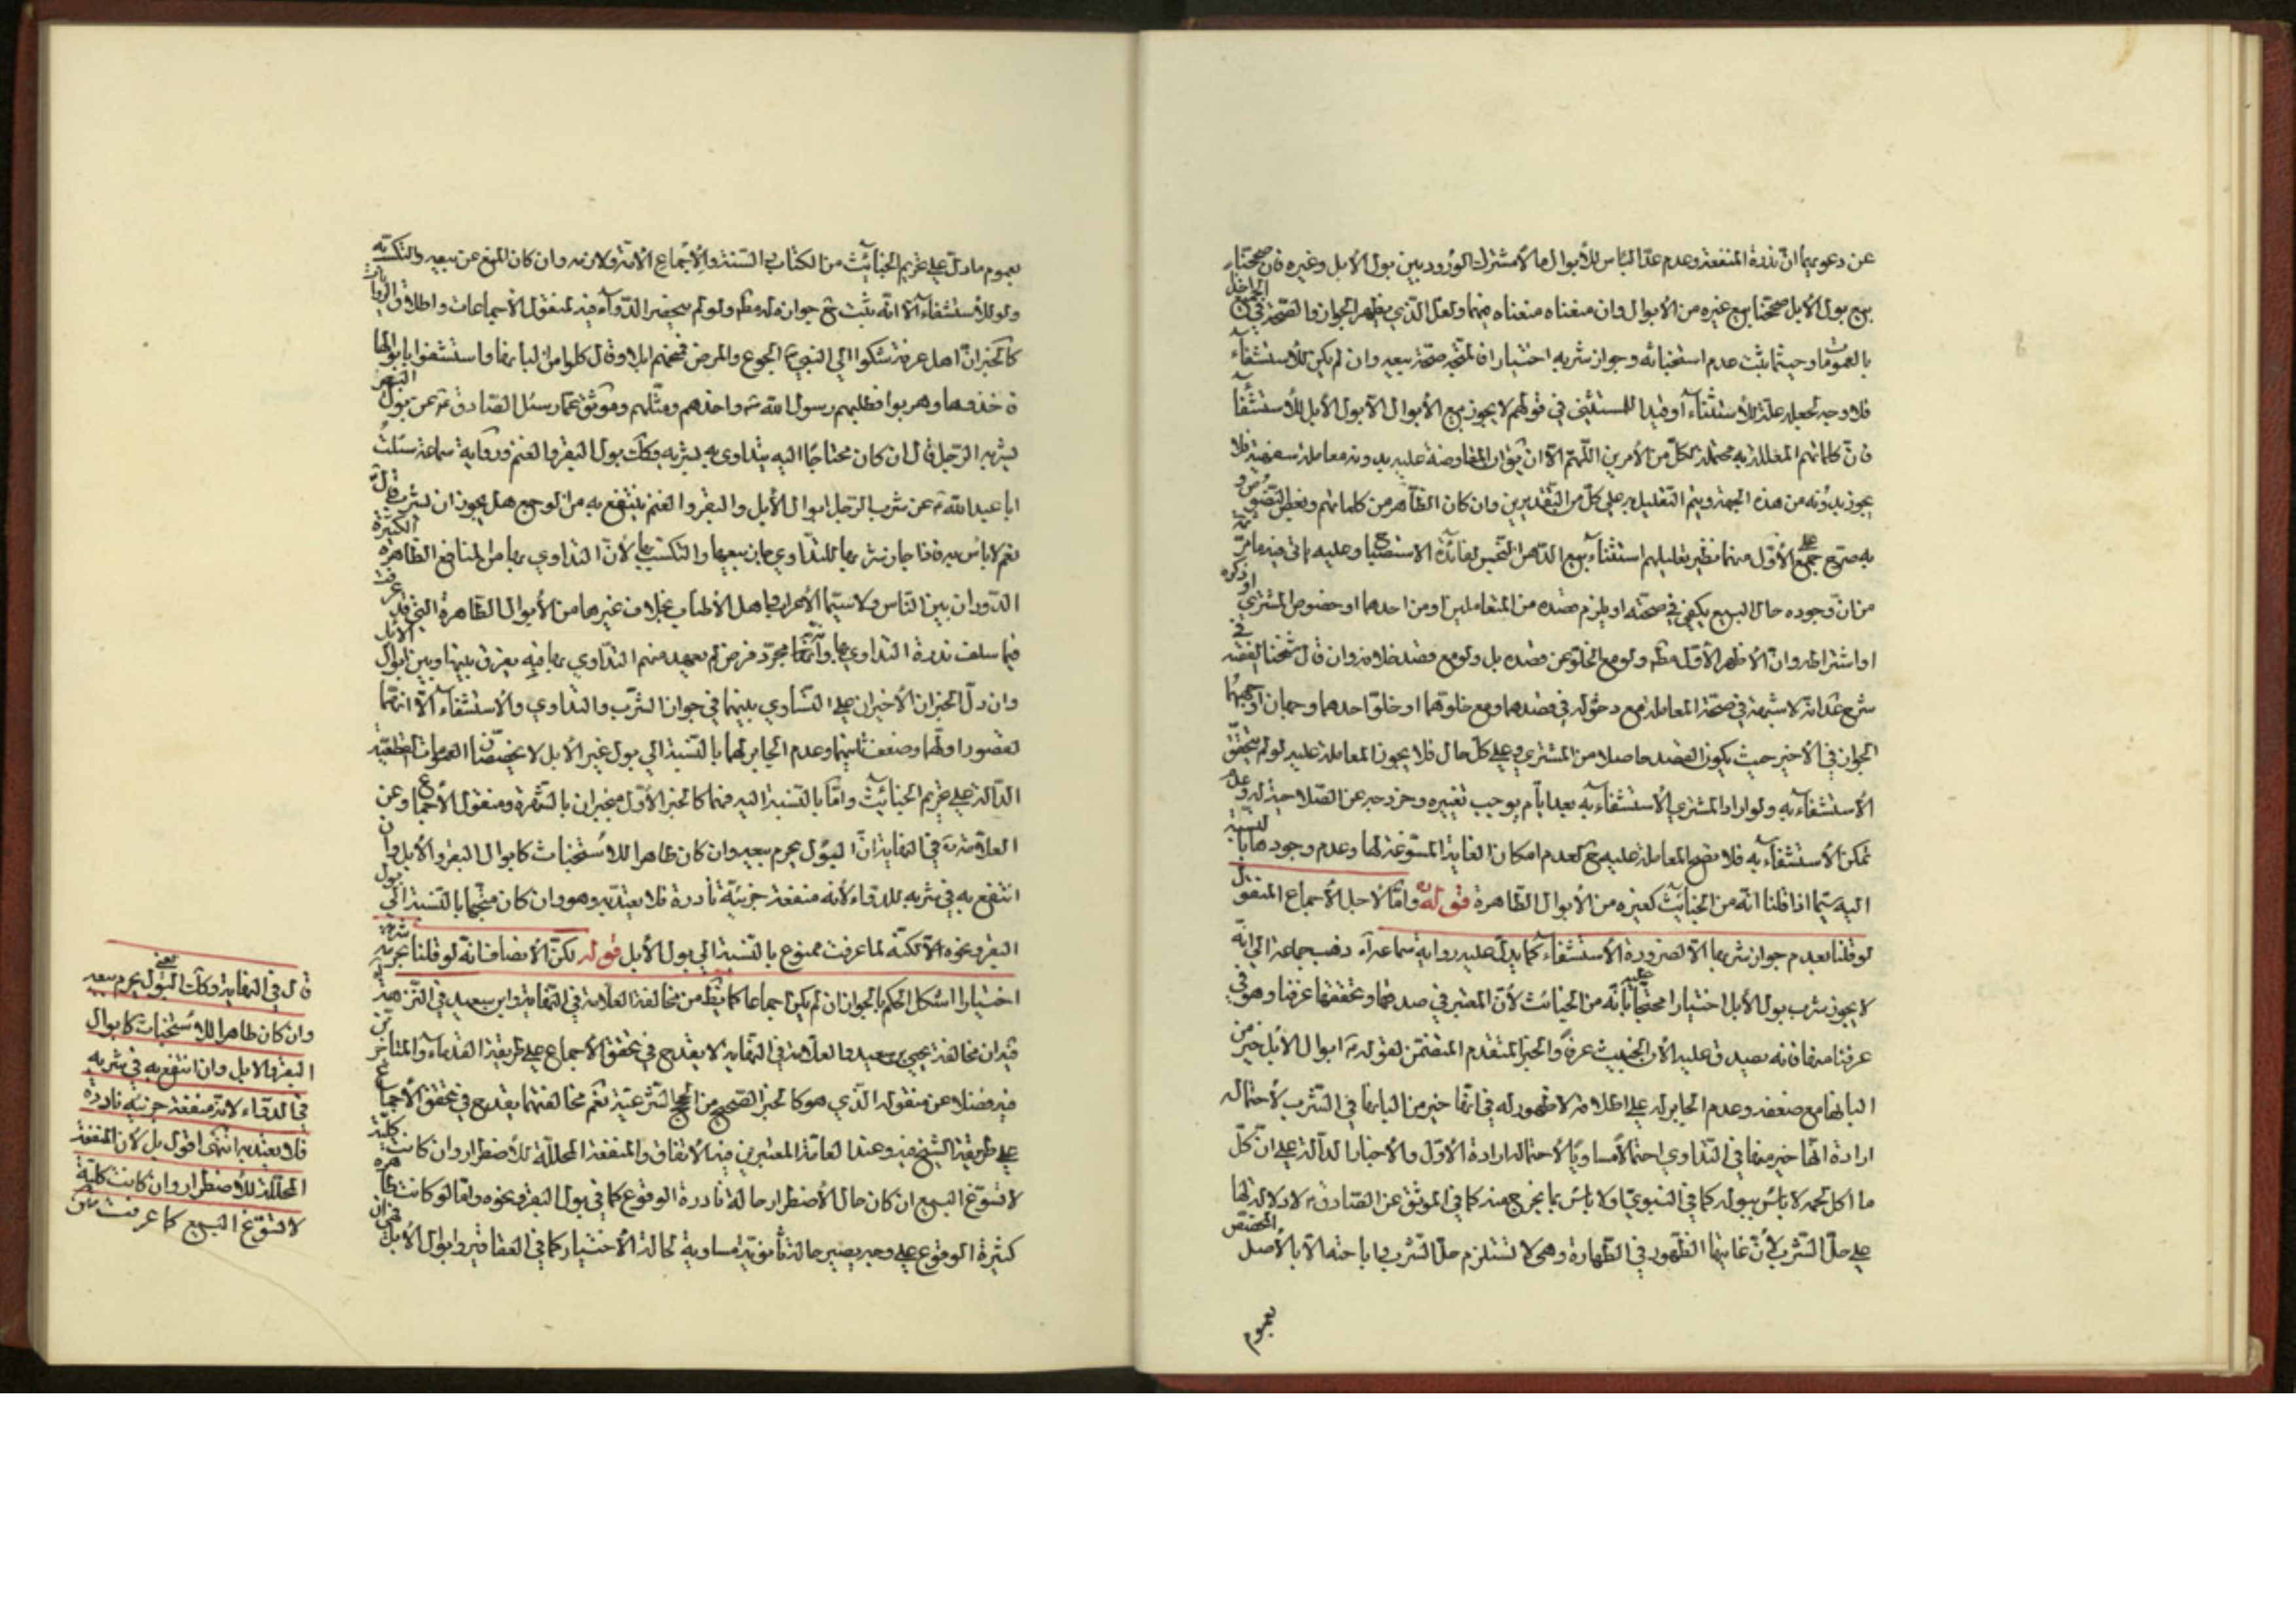 عن دعويهما ان ندرة المنفعة وعدم عدّ الناس للأبوال مالا مشترك الورود بين بول الأبل وغيره فان صححنا
بيع بول الأبل صححنا بيع غيره من الأبوال وان منعناه منعناه منهما ولعل الذي يظهر الجواز والصحة في
بالعمومات وحيثما يثبت عدم استخباثه وجواز شربه اختيارا فالمتجه صحة بيعه وان لم يكن للأستشفاء
فلا وجه لجعله علة للأستثناء او قيدا للمستثنى في قولهم لا يجوز بيع الأبوال الا بول الأبل للأستشفاء
فان كلماتهم المعللة به محتملة لكل من الأمرين اللهم الا ان يكون المعاوضة عليه بدونه معاملة سفهية فلا
يجوز بدونه من هذه الجهة ويتم التعليل به على كل من التقديرين وان كان الظاهر من كلماتهم وبعض النصوص و
به صرح جمع على الأول منهما نظير تعليلهم استثناء بيع الدهن النجس لفائدة الاستصباح وعليه ياتي فيه ما مر
من ان وجوده حال البيع يكفي في صحته او يلزم قصده من المتعاملين او من احدهما او خصوص المشتري او ذكره
او اشتراطه وان الأظهر الأول مطلقا ولو مع الخلو عن قصده بل ولو مع قصد خلافه وان قال شيخنا الفقيه في
شرح عد انه لا شبهة في صحة المعاملة مع دخوله في قصدهما ومع خلوهما او خلو احدهما وجهان اوجههما
الجواز في الأخير حيث يكون القصد حاصلا من المشتري وعلى كل حال فلا يجوز المعاملة عليه لو لم يتحقق
الأستشفاء به ولو اراد المشتري الأستشفاء به بعد ايام يوجب تغييره وخروجه عن الصلاحية له وعدم
تمكن الأستشفاء به فلا يصح المعاملة عليه ح لعدم امكان الغاية المسوغة لها وعدم وجودها بالنسبة
اليه سيما اذا قلنا انه من الخبائث كغيره من الأبوال الطاهرة قوله ره واما لأجل الأجماع المنقول
لو قلنا بعدم جواز شربها الا لضرورة الأستشفاء كما يدل عليه رواية سماعة اه ذهب جماعة الى انه
لا يجوز شرب بول الأبل اختيارا محتجا عليه بانه من الخبائث لأن المعتبر في صدقها وتحققها عرفنا وهو في
عرفنا منها فانه يصدق عليه الأن الخبيث عرفا والخبر المتقدم المتضمن لقوله ع ابوال الأبل خير من
البانها مع ضعفه وعدم الجابر له على اطلاقه لا ظهور له في انها خير من البانها في الشرب لأحتماله
ارادة انها خير منها في التداوي احتمالا مساويا لأحتماله ارادة الأول والأخبار الدالة على ان كل
ما اكل لحمه لا باس ببوله كما في النبوي او لا باس بما يخرج منه كما في الموثق عن الصادق ع لا دلالة لها
على حل الشرب لأن غايتها الظهور في الطهارة وهي لا تستلزم حل الشرب واباحته الا بالأصل المختص
بعموم
بعموم ما دل على تحريم الخبائث من الكتاب والسنة والأجماع الا نه ولازمه وان كان المنع عن بيعه والتكسب به
ولو للأستشفاء الا انه يثبت ح جوازه له مطلقا ولو لم ينحصر الدواء فيه لمنقول الأجماعات واطلاق الروايات
كالخبر ان اهل عرنة شكوا الى النبي ص الجوع والمرض فمنحهم ابلا وقال كلوا من البانها واستشفوا بابوالها
فاخذوها وهربوا فطلبهم رسول الله ص واخذهم ومثلهم وموثق عمار سئل الصادق ع عن بول البقر
يشربه الرجل قال ان كان محتاجا اليه يتداوى به يشربه وكذلك بول البقر والغنم ورواية سماعة سئلت
ابا عبد الله ع عن شرب الرجل ابوال الأبل والبقر والغنم ينتفع به من الوجع هل يجوز ان يشرب قال
نعم لا باس به فاذا جاز شربها للتداوي جاز بيعها والتكسب بها لأن التداوي بها من المنافع الظاهرة الكثيرة
الدوران بين الناس ولا سيما الأعراب واهل الأطباء بخلاف غيرها من الأبوال الطاهرة التي قد عرفت
فيما سلف ندرة التداوي بها وانه مجرد فرض لم يعهد منهم التداوي بها فيه يفرق بينها وبين ابوال الأبل
وان دل الخبران الأخيران على التساوي بينهما في جواز الشرب والتداوي والأستشفاء الا انهما
لقصور اولهما وضعف ثانيهما وعدم الجابر لهما بالنسبة الى بول غير الأبل لا يخصصان العمومات القطعية
الدالة على تحريم الخبائث واما بالنسبة اليه فهما كالخبر الأول منجبران بالشهرة ومنقول الأجماع وعن
العلامة ره في النهاية ان البول يحرم بيعه وان كان طاهرا للأستخباث كابوال البقر والأبل وان
انتفع به في شربه للدواء لأنه منفعة جزئية نادرة فلا يعتد به وهو وان كان متجها بالنسبة الى بول
البقر ونحوه الا انه لما عرفت ممنوع بالنسبة الى بول الأبل قوله لكن الأنصاف انه لو قلنا بحرمة شربه
اختيارا اشكل الحكم بالجواز ان لم يكن اجماعا كما يظهر من مخالفة العلامة في النهاية وابن سعيد في النزهة
فيه ان مخالفة يحيى بن سعيد والعلامة في النهاية لا يقدح في تحقق الأجماع على طريقة القدماء والمتاخرين
فيه فضلا عن منقوله الذي هو كالخبر الصحيح من الحجج الشرعية نعم مخالفتهما يقدح في تحقق الأجماع
على طريقة الشيخ فيه وعند العامة المعتبرين فيه الأتفاق والمنفعة المحللة للأضطرار وان كانت كلية
لا تسوغ البيع ان كان حال الأضطرار حالة نادرة الوقوع كما في بول البقر ونحوه واما لو كانت ظاهرة
كثيرة الوقوع على وجه يصير حالة ثانوية مساوية لحالة الأختيار كما في العقاقير وابوال الأبل فهي ان
قال في النهاية وكذلك البول يعني يحرم بيعه
وان كان طاهرا للأستخباث كابوال
البقر والابل وان انتفع به في شربه
في الدواء لانه منفعة جزئية نادرة
فلا يعتد به انتهى اقول بل لأن المنفعة
المحللة للأضطرار وان كانت كلية
لا تسوغ البيع كما عرفت